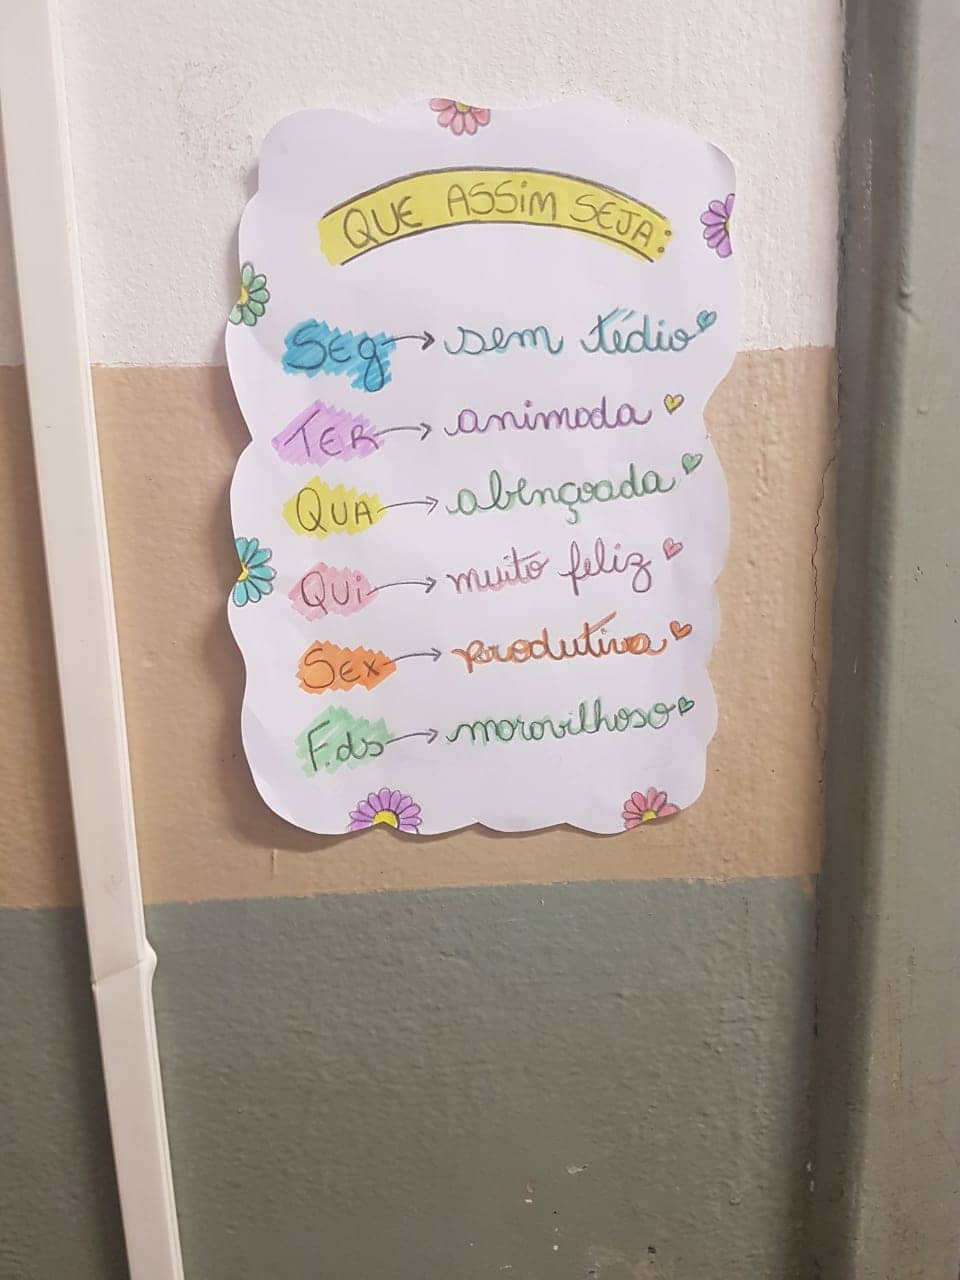 QUE ASSiM SEJA:
Seg → sem tédio
TER → animada
QUA → abençoada
QUi → muito feliz
Sex → produtiva
F.ds → maravilhoso